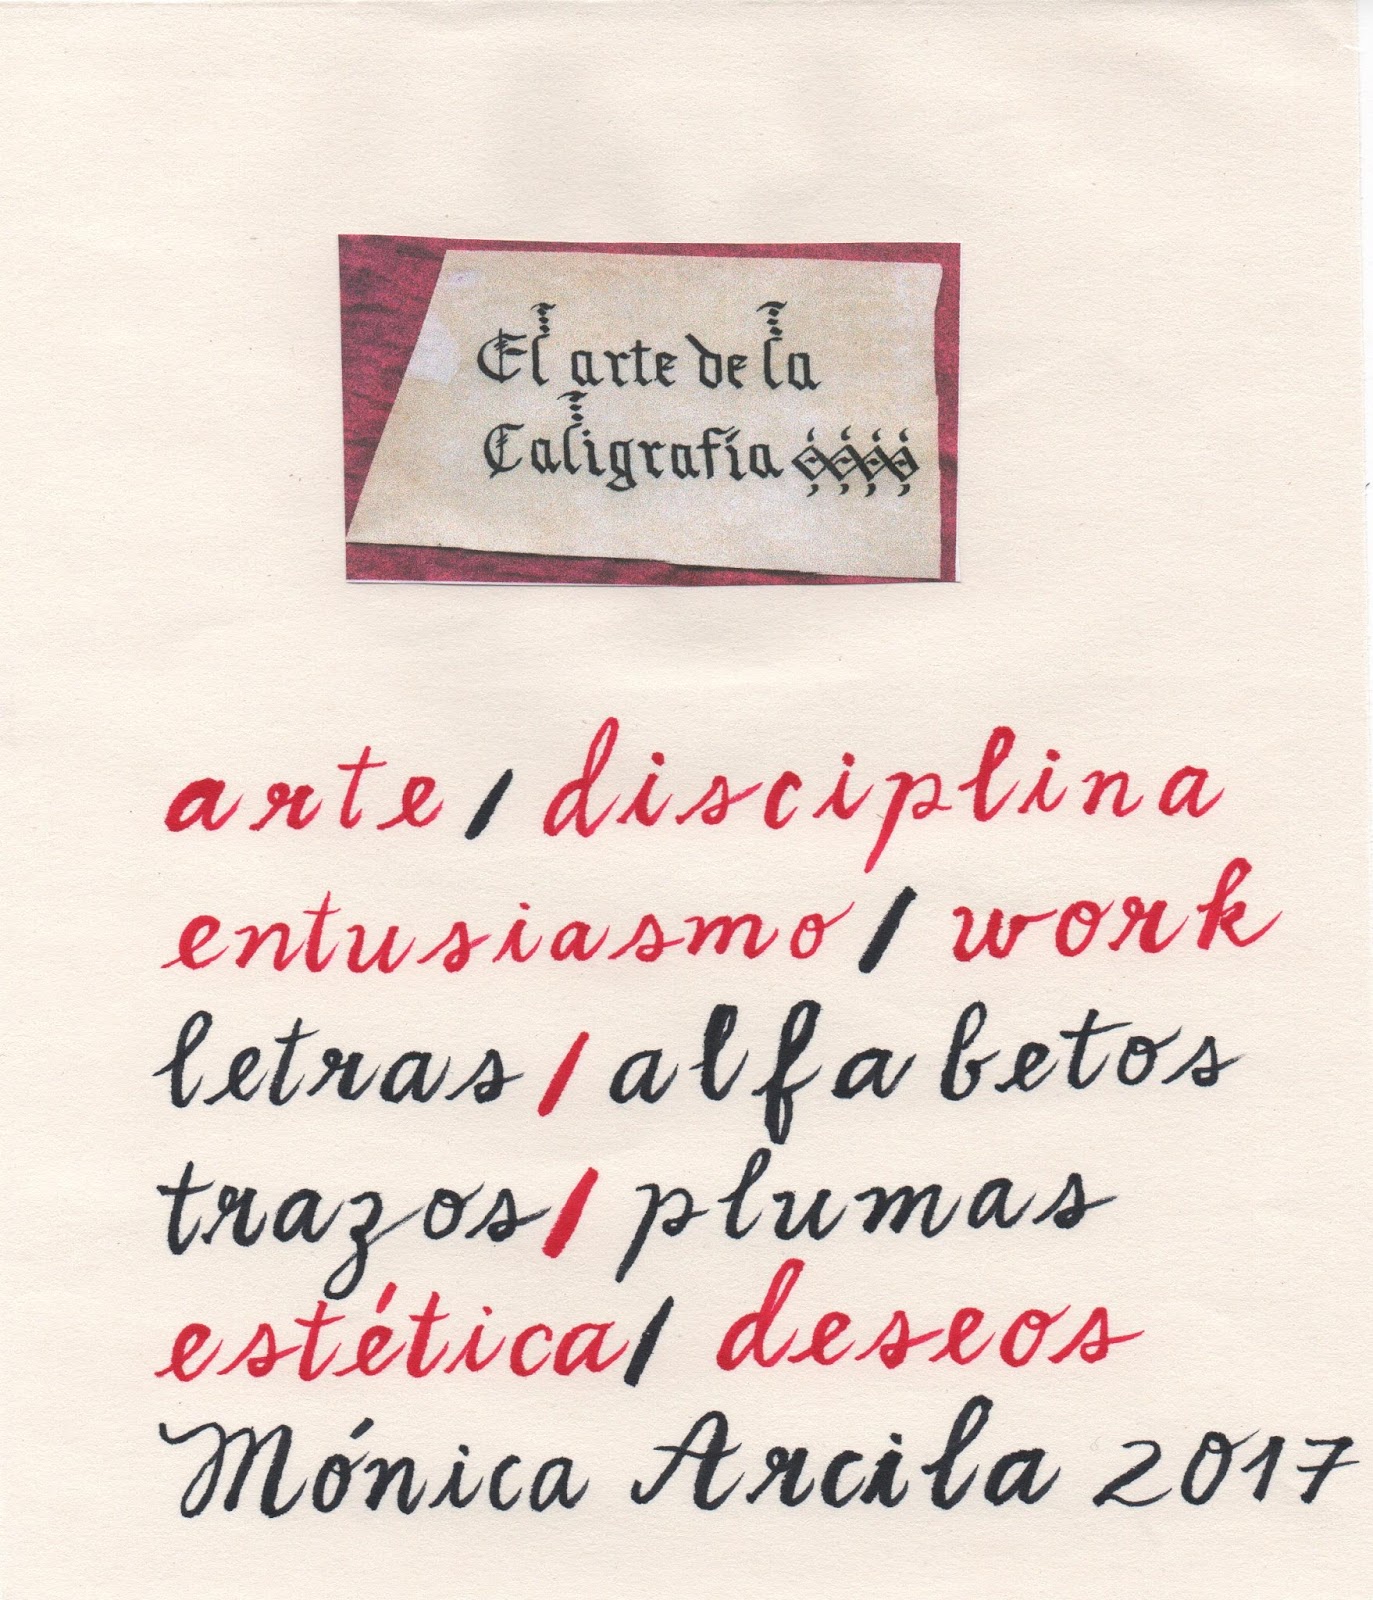 El arte de la
Caligrafía
arte / disciplina
entusiasmo / work
letras / alfabetos
trazos / plumas
estética / deseos
Mónica Arcila 2017